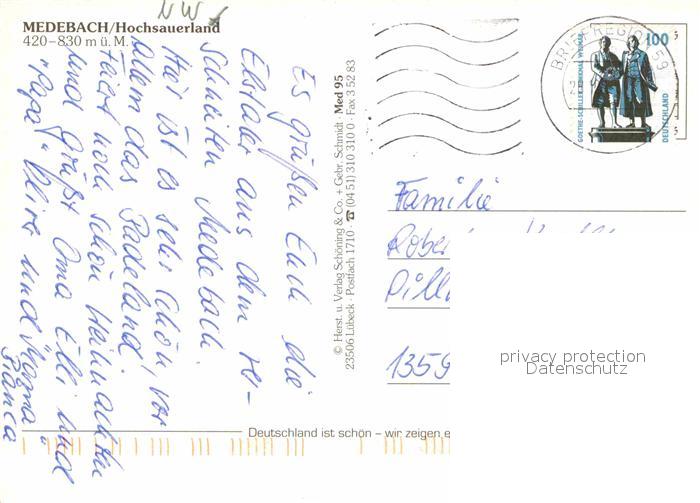 NW
MEDEBACH/Hochsauerland
420–830 m ü. M.
Es grüßen Euch die
Elstaler aus dem
Medebach.
Hier ist es sehr schön, vor
allem das Badeland.
Feiert noch schön Weihnachten
und grüßt Oma Elli und
"Papa"
und
Bianca
© Herst. u. Verlag Schöning & Co. + Gebr. Schmidt · Med 95
23506 Lübeck · Postfach 1710 · ☎ (04 51) 310 310 0 · Fax 3 52 83
BRIEFREGION 59
GOETHE-SCHILLER-DENKMAL WEIMAR
100
DEUTSCHLAND
Familie
1359
privacy protection
Datenschutz
Deutschland ist schön – wir zeigen e